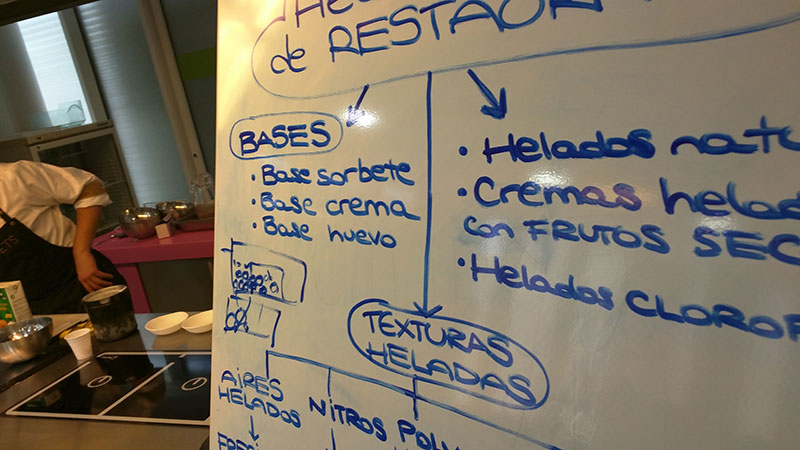 de RESTAUR
BASES
• Base sorbete
• Base crema
• Base huevo
• Helados natu
• Cremas helad
con FRUTOS SEC
• Helados CLOROF
TEXTURAS
HELADAS
AIRES
HELADOS
NITROS
POLV
ETS